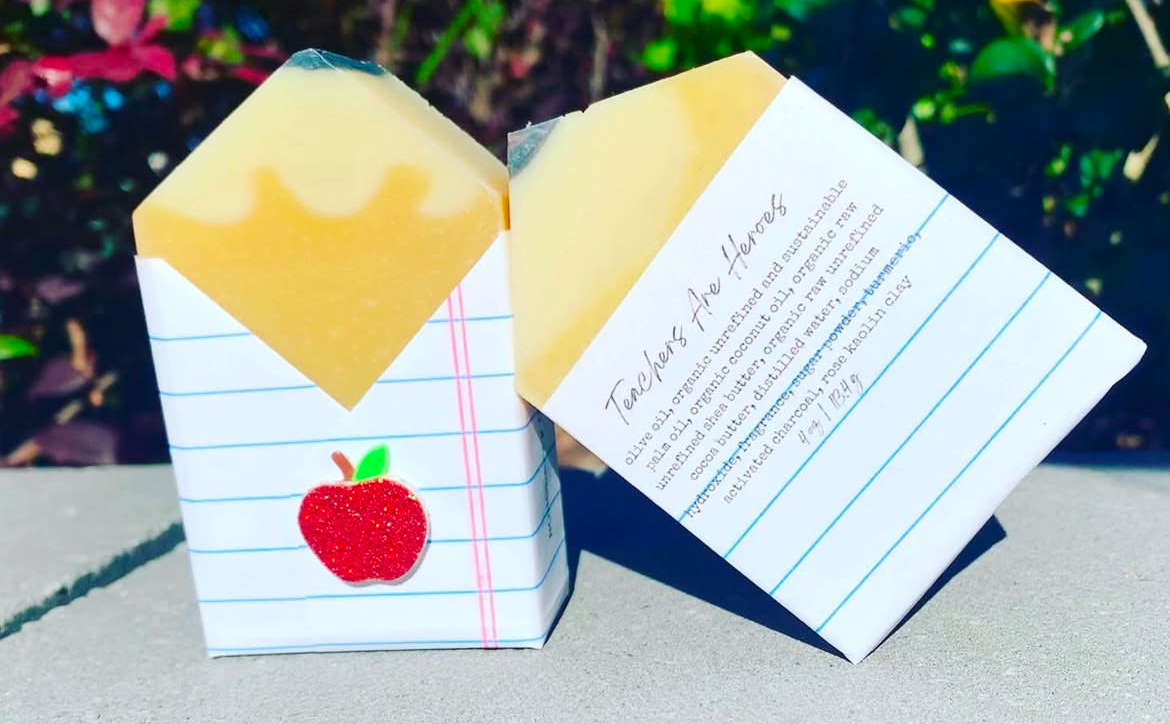 Teachers Are Heroes
olive oil, organic unrefined and sustainable
palm oil, organic coconut oil, organic raw
unrefined shea butter, organic raw unrefined
cocoa butter, distilled water, sodium
hydroxide, fragrance, sugar powder, turmeric,
activated charcoal, rose kaolin clay
4 oz | 113.4g